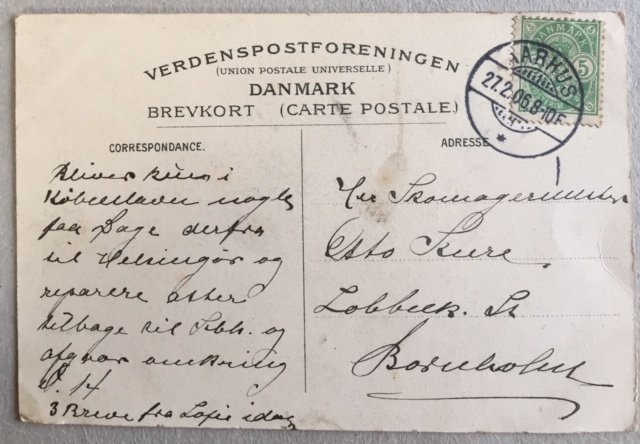 VERDENSPOSTFORENINGEN
(UNION POSTALE UNIVERSELLE)
DANMARK
BREVKORT (CARTE POSTALE.)
DANMARK
5
AARHUS
27.2.06.8-10F.
CORRESPONDANCE.
ADRESSE.
Bliver kuns i
København nogle
faa Dage derfra
til Helsingør og
reparere atter
tilbage til Kbh. og
omkring
d. 14
3 Breve fra Sofie idag
Hr Skomagermester
Otto Kure
Lobbæk. St
Bornholm